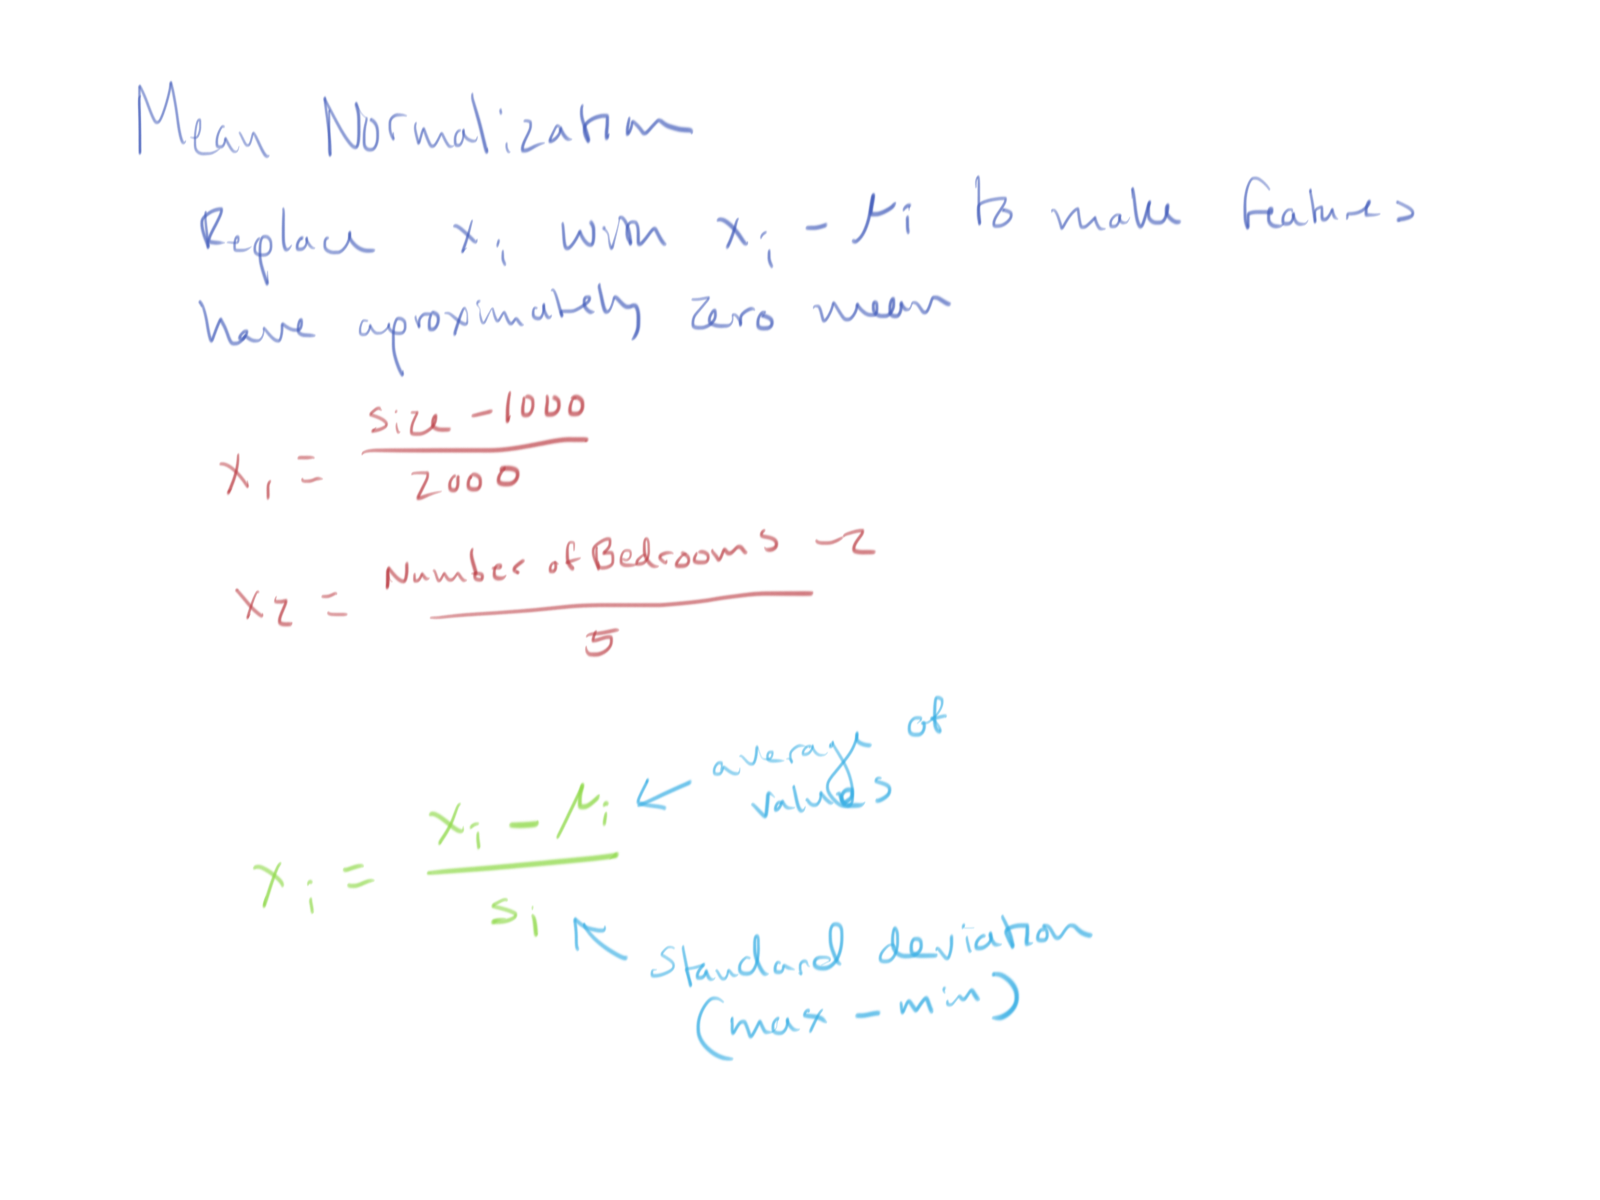 Mean Normalization
Replace xᵢ with xᵢ - μᵢ to make features
have aproximately zero mean
x₁ = (size - 1000) / 2000
x₂ = (Number of Bedrooms - 2) / 5
xᵢ = (xᵢ - μᵢ) / sᵢ
← average of
values
↖ standard deviation
(max - min)